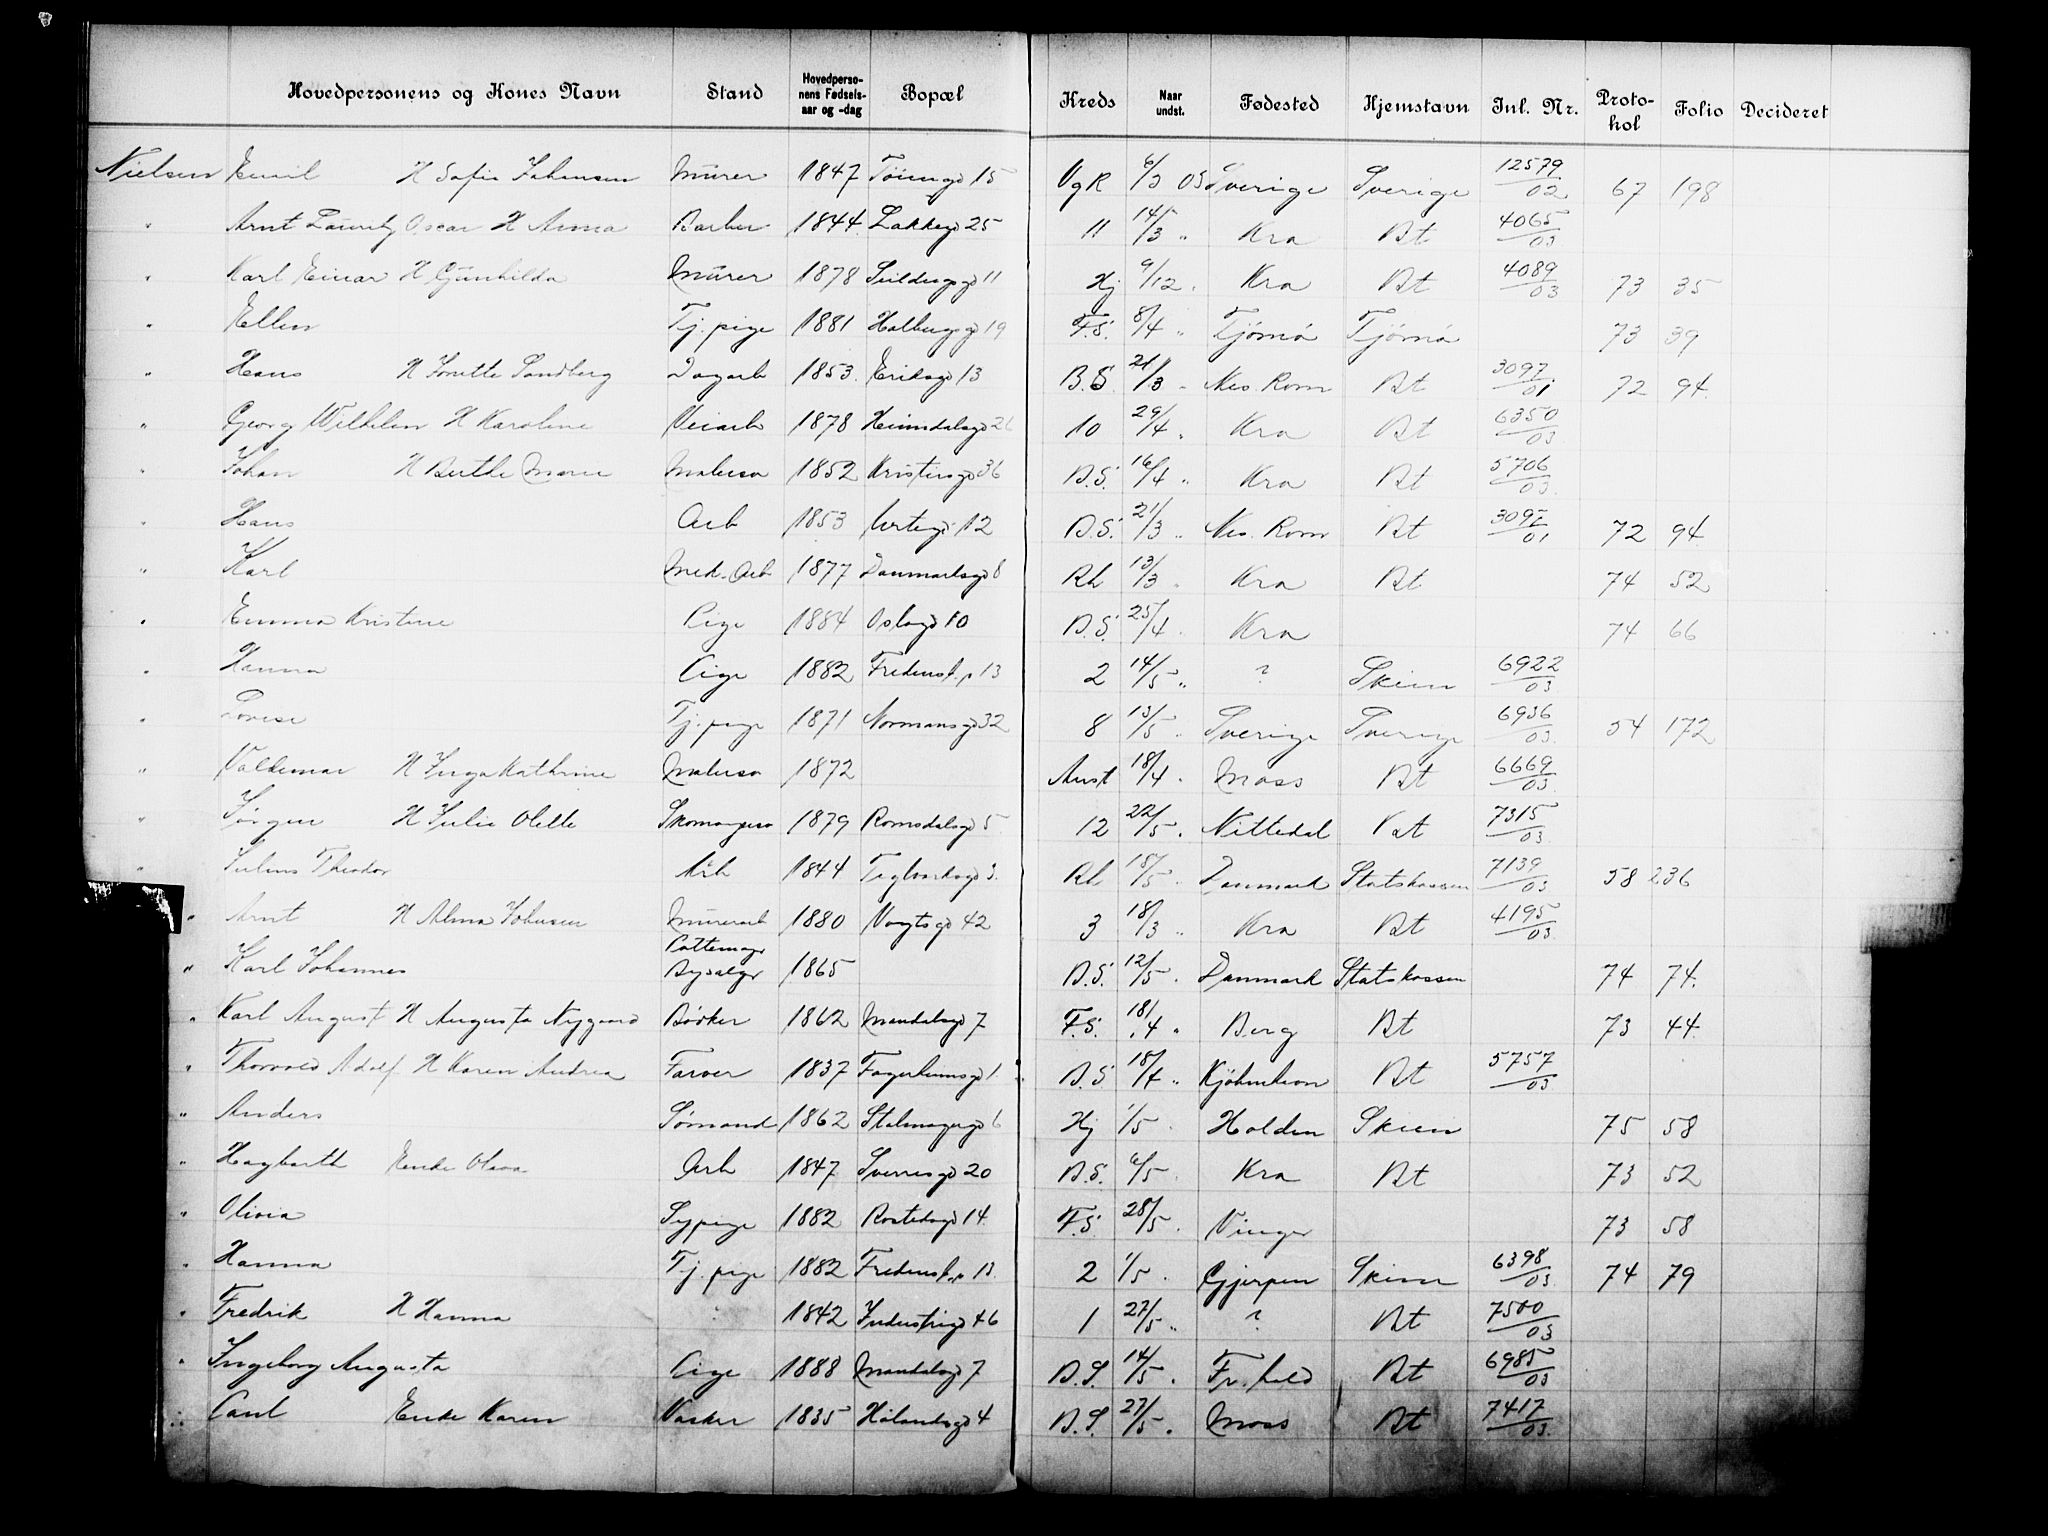 Hovedpersonens og Kones Navn Stand Hovedpersonens Fødselsaar og -dag Bopæl Kreds Naar undst. Fødested Hjemstavn Inl. Nr. Protokol Folio Decideret
Nielsen Emil H Sofie Johansen Murer 1847 Tøiengd 15 VgR 6/3 03 Sverige Sverige 12579/02 67 198
" Arnt Lauritz Oscar H Anna Barber 1844 Lakkegd 25 11 14/3 " Kra Bt 4065/03
" Karl Einar H Gunhilda Murer 1878 11 Hj 9/12 " Kra Bt 4089/03 73 35
" Ellen Tj. pige 1881 Holbergsgd 19 F.S. 8/4 " Tjømø Tjømø 73 39
" Hans H Sandberg Dagarb 1853 Eriksgd 13 B.S. 21/3 " Nes. Rom Bt 3097/01 72 94
" Georg Wilhelm H Karoline Veiarb 1878 Heimdalsgd 26 10 29/4 " Kra Bt 6350/03
" Johan H Berthe Marie Malersv 1852 Kristinsgd 36 B.S. 16/4 " Kra Bt 5706/03
" Hans Arb 1853 Urtegd 12 B.S. 21/3 " Nes. Rom Bt 3097/01 72 94
" Karl Mek. Arb 1877 Danmarksgd 8 Rh 13/3 " Kra Bt 74 52
" Emma Kristine Pige 1884 Oslogd 10 B.S. 25/4 " Kra 74 66
" Hanna Pige 1882 Fredensb. p 13 2 14/5 " ? Skien 6922/03
" Lovise Tj. pige 1871 Normansgd 32 8 13/5 " Sverige Sverige 6936/03 54 172
" Valdemar H Inga Kathrine Malersv 1872 Aust 18/4 " Moss Bt 6669/03
" Jørgen H Julie Olette Skomagersv 1879 Romsdalsgd 5 12 22/5 " Nittedal Bt 7315/03
" Julius Theodor Arb 1844 Teglverksgd 3 Rh 18/5 " Danmark Statskassen 7139/03 58 236
" Arnt H Alma Johnsen Murerarb 1880 Vogtsgd 42 3 18/3 " Kra Bt 4195/03
" Karl Johannes Pottemagr Bysælgr 1865 B.S. 12/5 " Danmark Statskassen 74 74
" Karl August H Augusta Nygaard Bødker 1862 Mandalsgd 7 F.S. 18/4 " Berg Bt 73 44
" Thorvald Adolf H Karen Andrea Farver 1837 Fagerheimsgd 1 B.S 18/4 " Kjøbenhavn Bt 5757/03
" Anders Sømand 1862 Stalmagergd 6 Hj 1/5 " Holden Skien 75 58
" Hagbarth Enke Olava Arb 1847 Sverresgd 20 B.S. 6/5 " Kra Bt 73 52
" Olivia Sypige 1882 Rostedsgd 14 F.S. 28/5 " Vinger 73 58
" Hanna Tj. pige 1882 Fredensb. p 13 2 1/5 " Gjerpen Skien 6398/03 74 79
" Fredrik H Hanna " 1842 Industrigd 46 1 27/5 " ? Bt 7500/03
" Ingeborg Augusta Pige 1888 Mandalsgd 7 B.S. 14/5 " Fr. hald Bt 6985/03
" Paul Enke Karen Vasker 1835 Hølandsgd 4 B.S. 27/5 " Moss Bt 7417/03